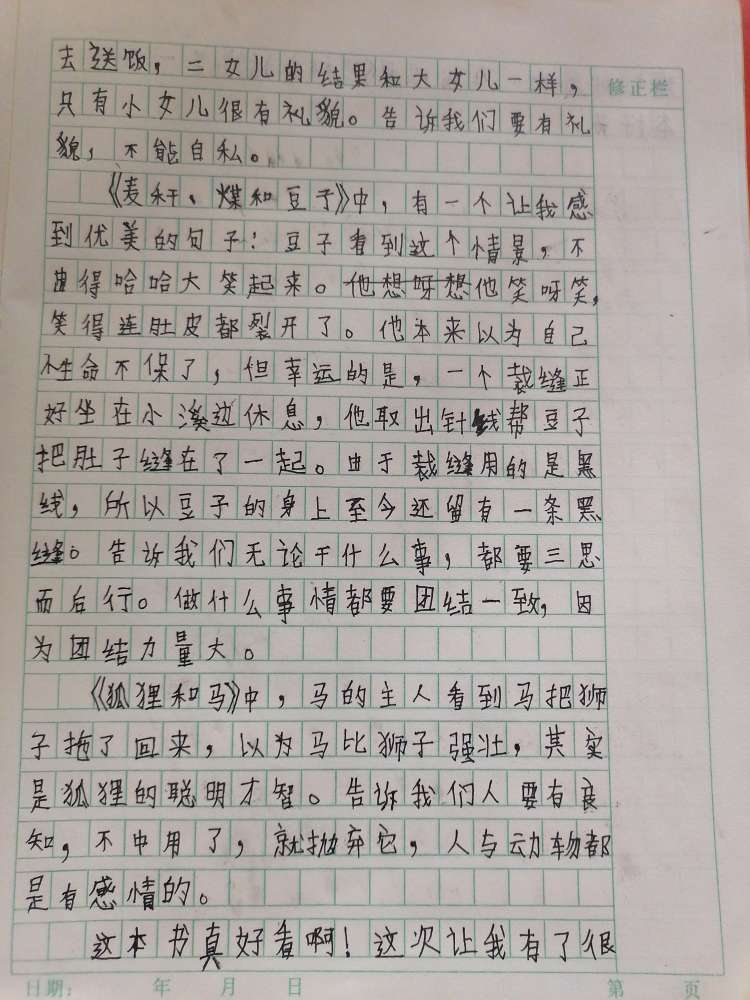 去送饭，二女儿的结果和大女儿一样，
修正栏
只有小女儿很有礼貌。告诉我们要有礼
貌，不能自私。
《麦秆、煤和豆子》中，有一个让我感
到优美的句子：豆子看到这个情景，不
由得哈哈大笑起来。他想呀想他笑呀笑，
笑得连肚皮都裂开了。他本来以为自己
小生命不保了，但幸运的是，一个裁缝正
好坐在小溪边休息，他取出针线帮豆子
把肚子缝在了一起。由于裁缝用的是黑
线，所以豆子的身上至今还留有一条黑
缝。告诉我们无论干什么事，都要三思
而后行。做什么事情都要团结一致，因
为团结力量大。
《狐狸和马》中，马的主人看到马把狮
子拖了回来，以为马比狮子强壮，其实
是狐狸的聪明才智。告诉我们人要有良
知，不中用了，就抛弃它，人与动物都
是有感情的。
这本书真好看啊！这次让我有了很
日期： 年 月 日 第 页